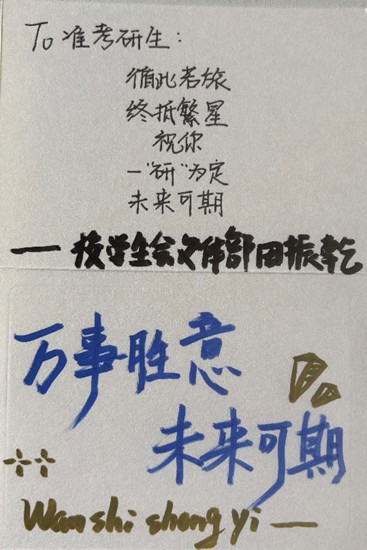 To 准考研生：
循此苦旅
终抵繁星
祝你
一"研"为定
未来可期
—— 校学生会文体部田振乾
万事胜意
未来可期
Wan shi sheng yi —